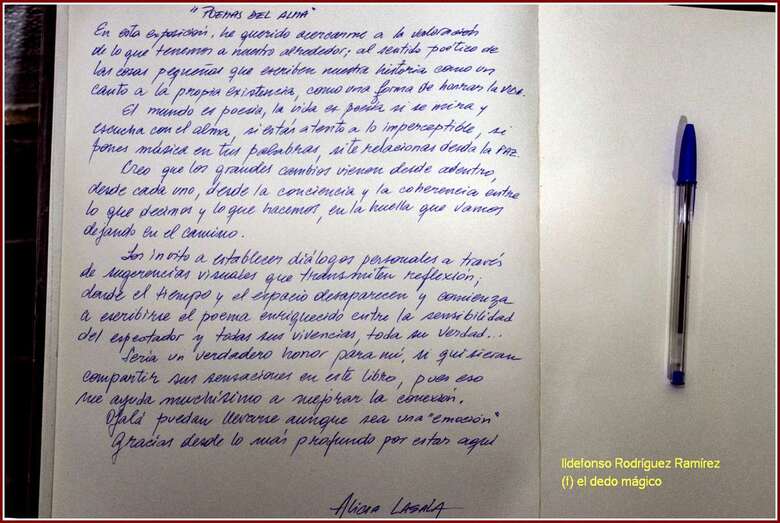 "POEMAS DEL ALMA"
En esta exposición, he querido acercarme a la valoración
de lo que tenemos a nuestro alrededor; al sentido poético de
las cosas pequeñas que escriben nuestra historia como un
canto a la propia existencia, como una forma de honrar la vida.
El mundo es poesía, la vida es poesía si se mira y
escucha con el alma, si estás atento a lo imperceptible, si
pones música en tus palabras, si te relacionas desde la PAZ.
Creo que los grandes cambios vienen desde adentro,
desde cada uno, desde la conciencia y la coherencia entre
lo que decimos y lo que hacemos, en la huella que vamos
dejando en el camino.
Los invito a establecer diálogos personales a través
de sugerencias visuales que transmiten reflexión;
donde el tiempo y el espacio desaparecen y comienza
a escribirse el poema enriquecido entre la sensibilidad
del espectador y todas sus vivencias, toda su verdad...
Sería un verdadero honor para mí, si quisieran
compartir sus sensaciones en este libro, pues eso
me ayuda muchísimo a mejorar la conexión.
Ojalá puedan llevarse aunque sea una "emoción"
Gracias desde lo más profundo por estar aquí
Alicia LASALA
Ildefonso Rodríguez Ramírez
(!) el dedo mágico